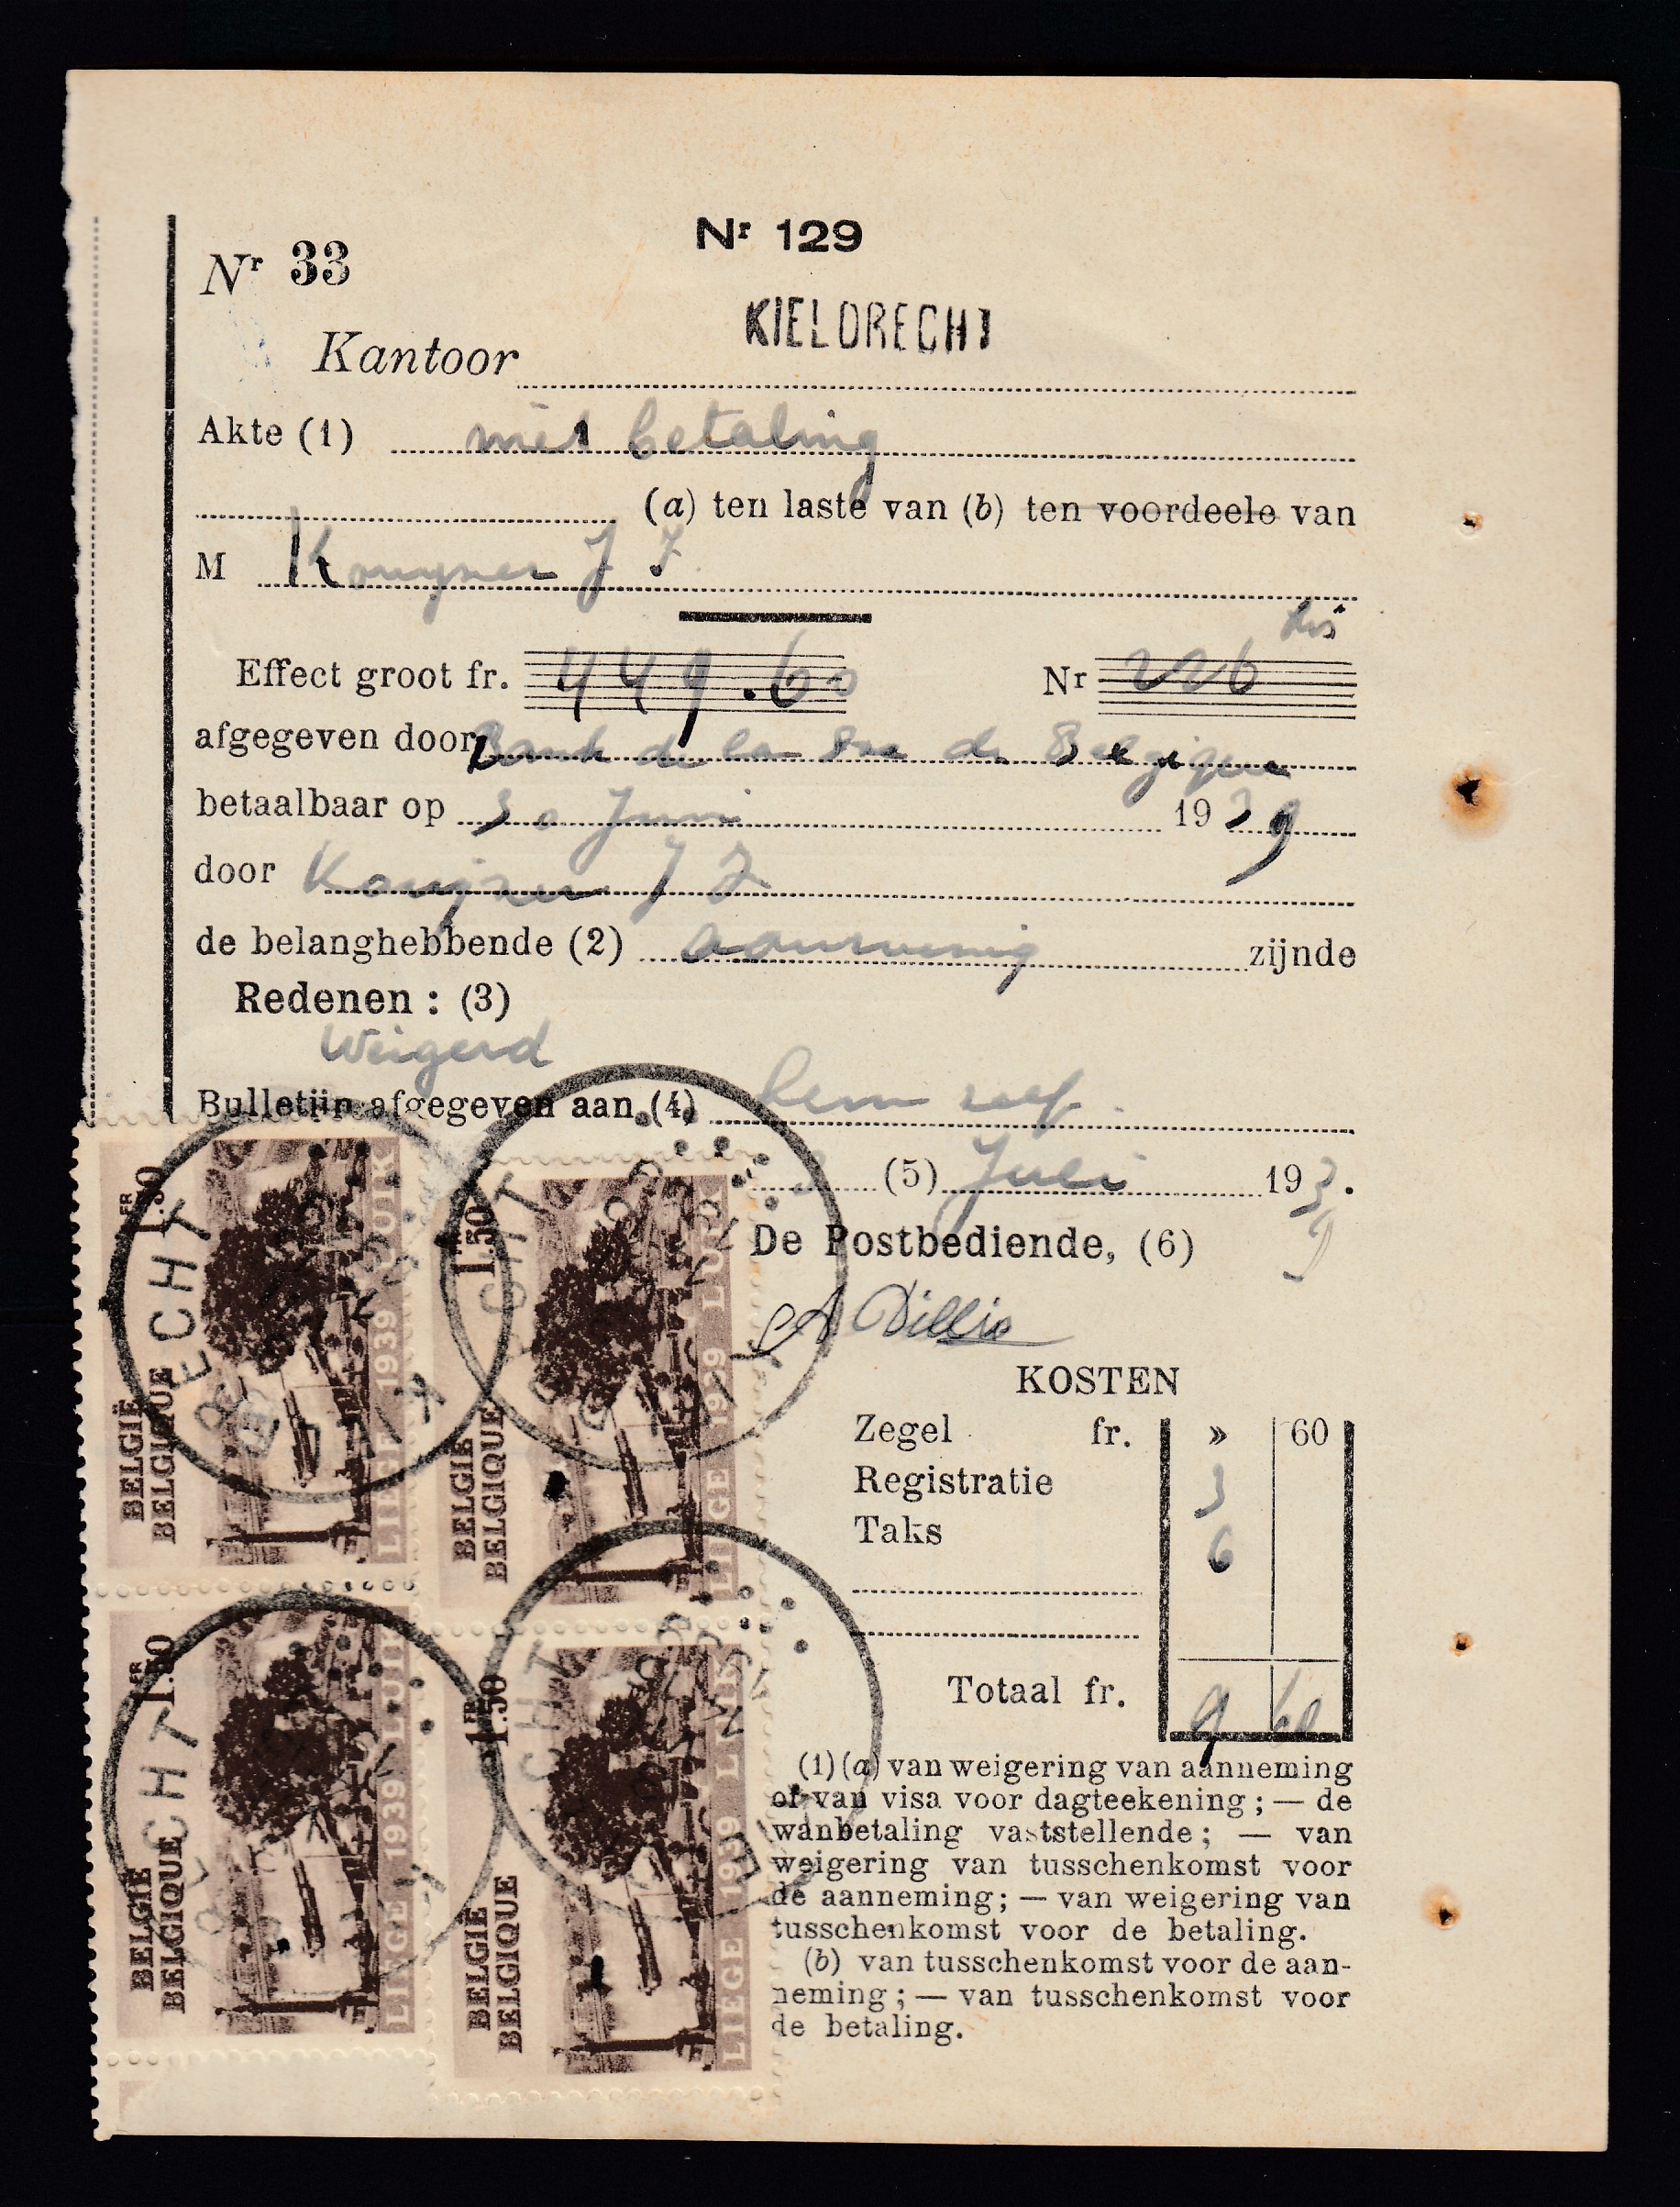 Nr 129
Nr 33
KIELDRECHT
Kantoor
Akte (1) niet betaling
(a) ten laste van (b) ten voordeele van
M J
bis
Effect groot fr. 449.60 Nr 226
afgegeven door de la de Belgique
betaalbaar op 30 Juni 1939
door J
de belanghebbende (2) aanwezig zijnde
Redenen : (3)
Weigerd
Bulletijn afgegeven aan (4) hem self.
(5) Juli 193.
9
De Postbediende, (6)
KOSTEN
Zegel fr. » 60
Registratie 3
Taks 6
Totaal fr. 9 60
(1) (a) van weigering van aanneming
of van visa voor dagteekening ; — de
wanbetaling vaststellende ; — van
weigering van tusschenkomst voor
de aanneming ; — van weigering van
tusschenkomst voor de betaling.
(b) van tusschenkomst voor de aan-
neming ; — van tusschenkomst voor
de betaling.
1FR 50
BELGIË
BELGIQUE
LIEGE 1939 LUIK
1FR 50
BELGIË
BELGIQUE
LIEGE 1939 LUIK
1FR 50
BELGIË
BELGIQUE
LIEGE 1939 LUIK
1FR 50
BELGIË
BELGIQUE
LIEGE 1939 LUIK